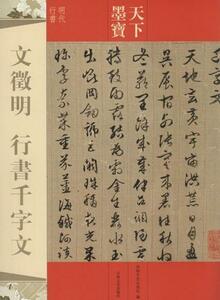 天下
墨寶
明代
行書
文徵明 行書千字文
天地玄黃宇宙洪荒日月盈
昃辰宿列張寒來暑往秋收
冬藏閏餘成歲律呂調陽雲
騰致雨露結為霜金生麗水玉
出崑岡劍號巨闕珠稱夜光果
珍李柰菜重芥薑海鹹河淡